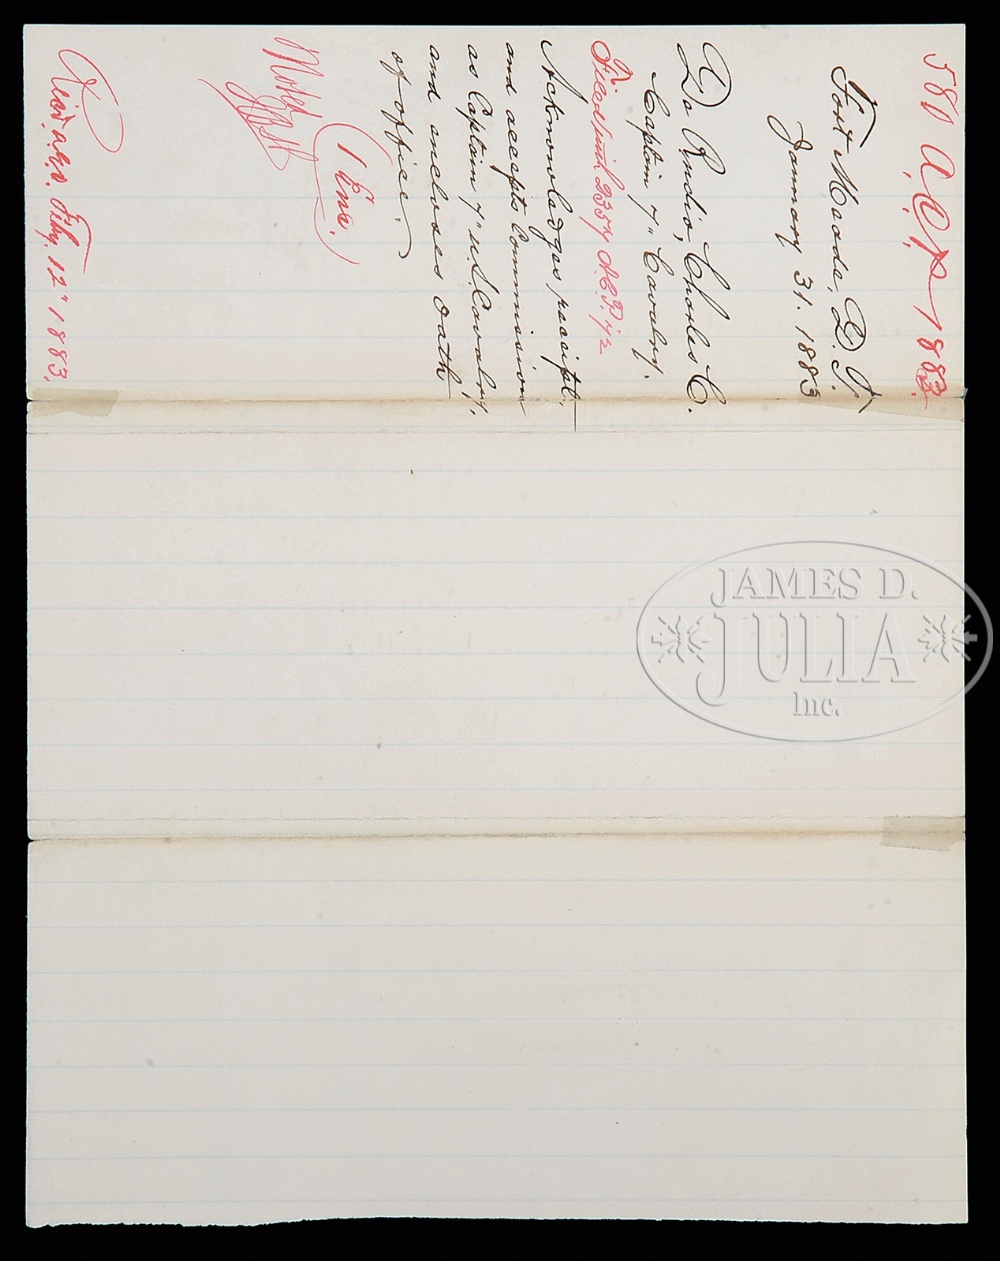 580 A.C.P. 1883.
Fort Meade, D. T.
January 31. 1883
De Rudio, Charles C.
Captain 7" Cavalry.
Filed with 2354 A.C.P. 72
Acknowledges receipt
and accepts Commission
as Captain 7" U.S. Cavalry,
and encloses oath
of office.
(1 Enc.)
Noted
Rec'd. A.G.O. Feby. 12" 1883.
JAMES D.
JULIA
Inc.